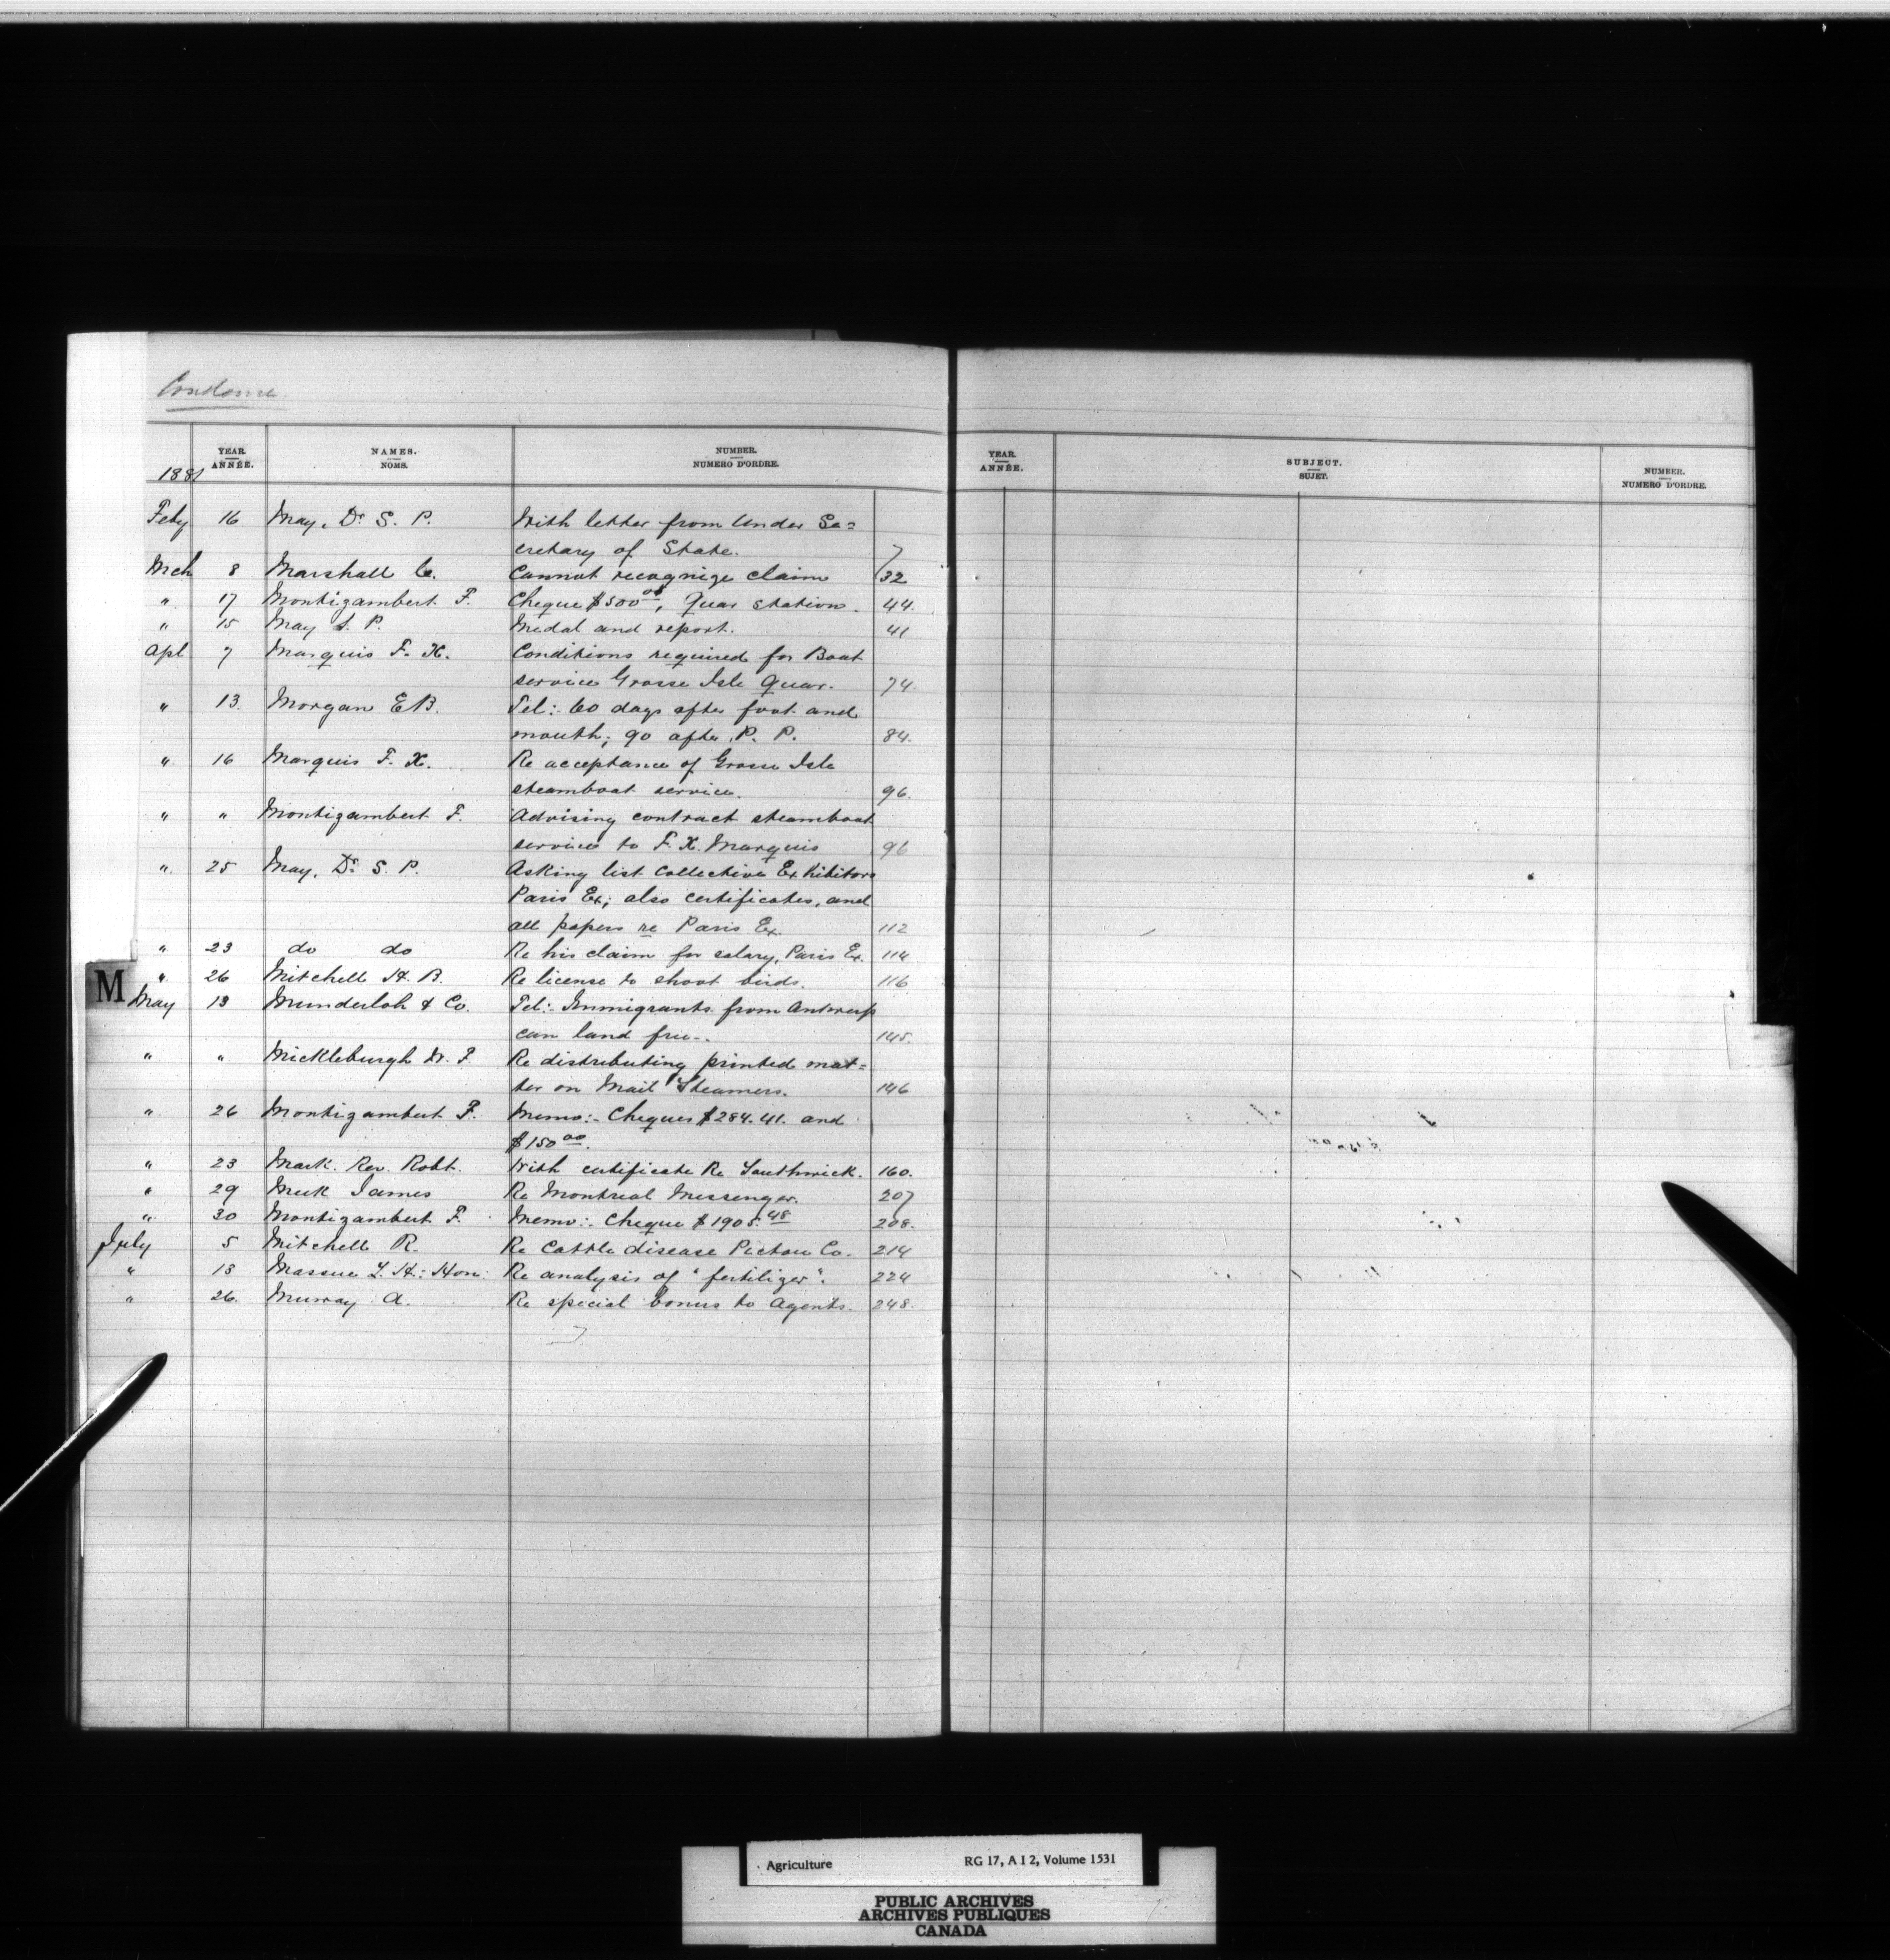 YEAR. NAMES. NUMBER. YEAR. SUBJECT. NUMBER.
ANNÉE. NOMS. NUMERO D'ORDRE. ANNÉE. SUJET. NUMERO D'ORDRE.
188
Feby 16 May, Dr S. P. With letter from Under Se=
cretary of State. 7
Mch 8 Marshall C. Cannot recognize claim 32
" 17 Montizambert F. Cheque $500 00, Quar station. 44.
" 15 May S. P. Medal and report. 41
Apl 7 Marquis F. X. Conditions required for Boat
service Grosse Isle Quar. 74.
" 13. Morgan E B. Tel:- 60 days after foot and
mouth; 90 after P. P. 84.
" 16 Marquis F. X. Re acceptance of Grosse Isle
steamboat service. 96.
" " Montizambert F. Advising contract steamboat
service to F. X. Marquis 96
" 25 May, Dr S. P. Asking list Collective Exhibitors
Paris Ex; also certificates, and
all papers re Paris Ex. 112
" 23 do do Re his claim for salary, Paris Ex. 114
M
" 26 Mitchell H. B. Re license to shoot birds. 116
May 13 Munderloh & Co. Tel:- Immigrants from Antwerp
can land free-. 145.
" " Mickleburgh W. F. Re distributing printed mat=
ter on Mail Steamers. 146
" 26 Montizambert F. Memo:- Cheques $284.41. and
$150 00.
" 23 Mark. Rev. Robt. With certificate Re Southwick. 160.
" 29 Meek James Re Montreal Messenger. 207
" 30 Montizambert F. Memo:- Cheque $1905.48 208.
July 5 Mitchell R. Re Cattle disease Pictou Co. 214
" 13 Massue L. H.: Hon: Re analysis of "fertilizer". 224
" 26. Murray A. Re special bonus to Agents. 248.
Agriculture RG 17, A I 2, Volume 1531
PUBLIC ARCHIVES
ARCHIVES PUBLIQUES
CANADA